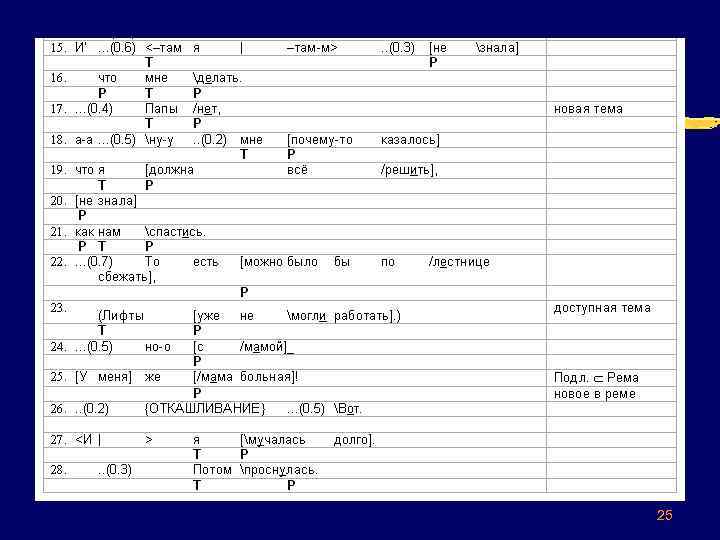 15. И' ...(0.6) <–там я | –там-м> ..(0.3) [не \знала]
Т Р
16. что мне \делать.
Р Т Р
17. ...(0.4) Папы /нет, новая тема
Т Р
18. а-а ...(0.5) \ну-у ..(0.2) мне [почему-то казалось]
Т Р
19. что я [должна всё /решить],
Т Р
20. [не знала]
Р
21. как нам \спастись.
Р Т Р
22. ...(0.7) То есть [можно было бы по /лестнице
сбежать],
Р
23. доступная тема
(Лифты [уже не \могли работать].)
Т Р
24. ...(0.5) но-о [с /мамой]_
Р
25. [У меня] же [/мама больная]! Подл. ⊂ Рема
Р новое в реме
26. ..(0.2) {ОТКАШЛИВАНИЕ} ...(0.5) \Вот.
27. <И | > я [\мучалась долго].
Т Р
28. ..(0.3) Потом \проснулась.
Т Р
25